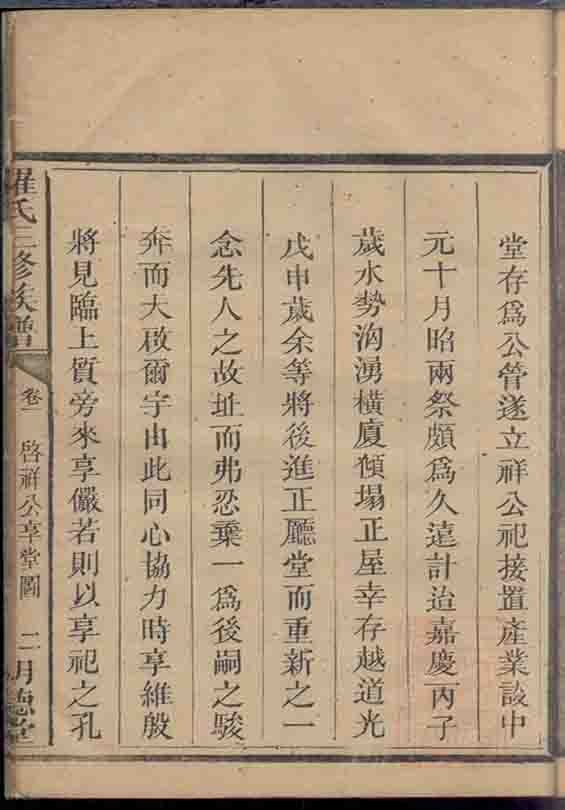 堂存爲公管遂立祥公祀接置產業設中
元十月昭兩祭頗爲久遠計迨嘉慶丙子
歲水勢洶湧橫廈傾塌正屋幸存越道光
戊申歲余等將後進正廳堂而重新之一
念先人之故址而弗忍棄一爲後嗣之駿
奔而大啟爾宇由此同心協力時享維殷
將見臨上質旁來享儼若則以享祀之孔
羅氏三修族譜
卷一 啓祥公享堂圖 二 明德堂